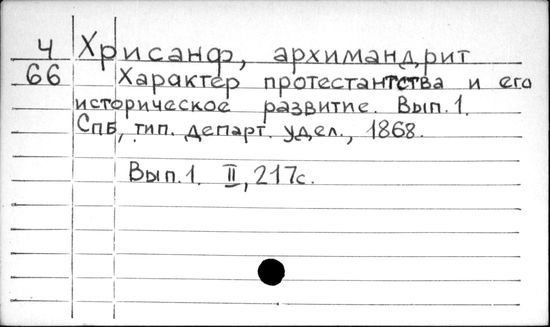 Ч Хрисанф, архимандрит
66 Характер протестантства и его
историческое развитие. Вып.1.
Спб, тип. департ. удел., 1868.
Вып.1. II, 217с.